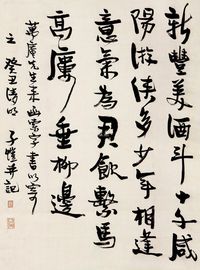 新豐美酒斗十千咸
陽游俠多少年相逢
意氣為君飲繫馬
高樓垂柳邊
庵先生來函索字書以寄
之 癸丑清明 子愷并記